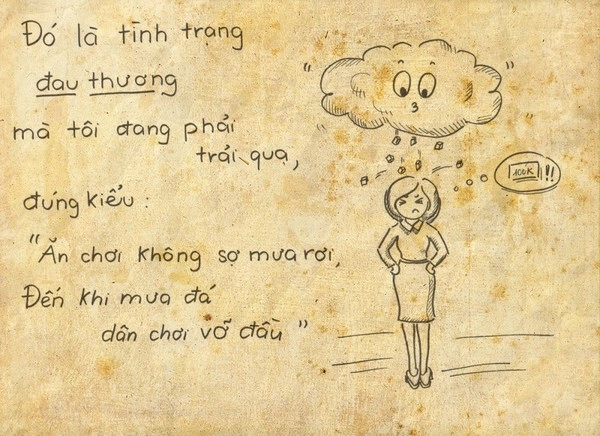 Đó là tình trạng
đau thương
mà tôi đang phải
trải qua,
đúng kiểu :
"Ăn chơi không sợ mưa rơi,
Đến khi mưa đá
dân chơi vỡ đầu"
100K !!